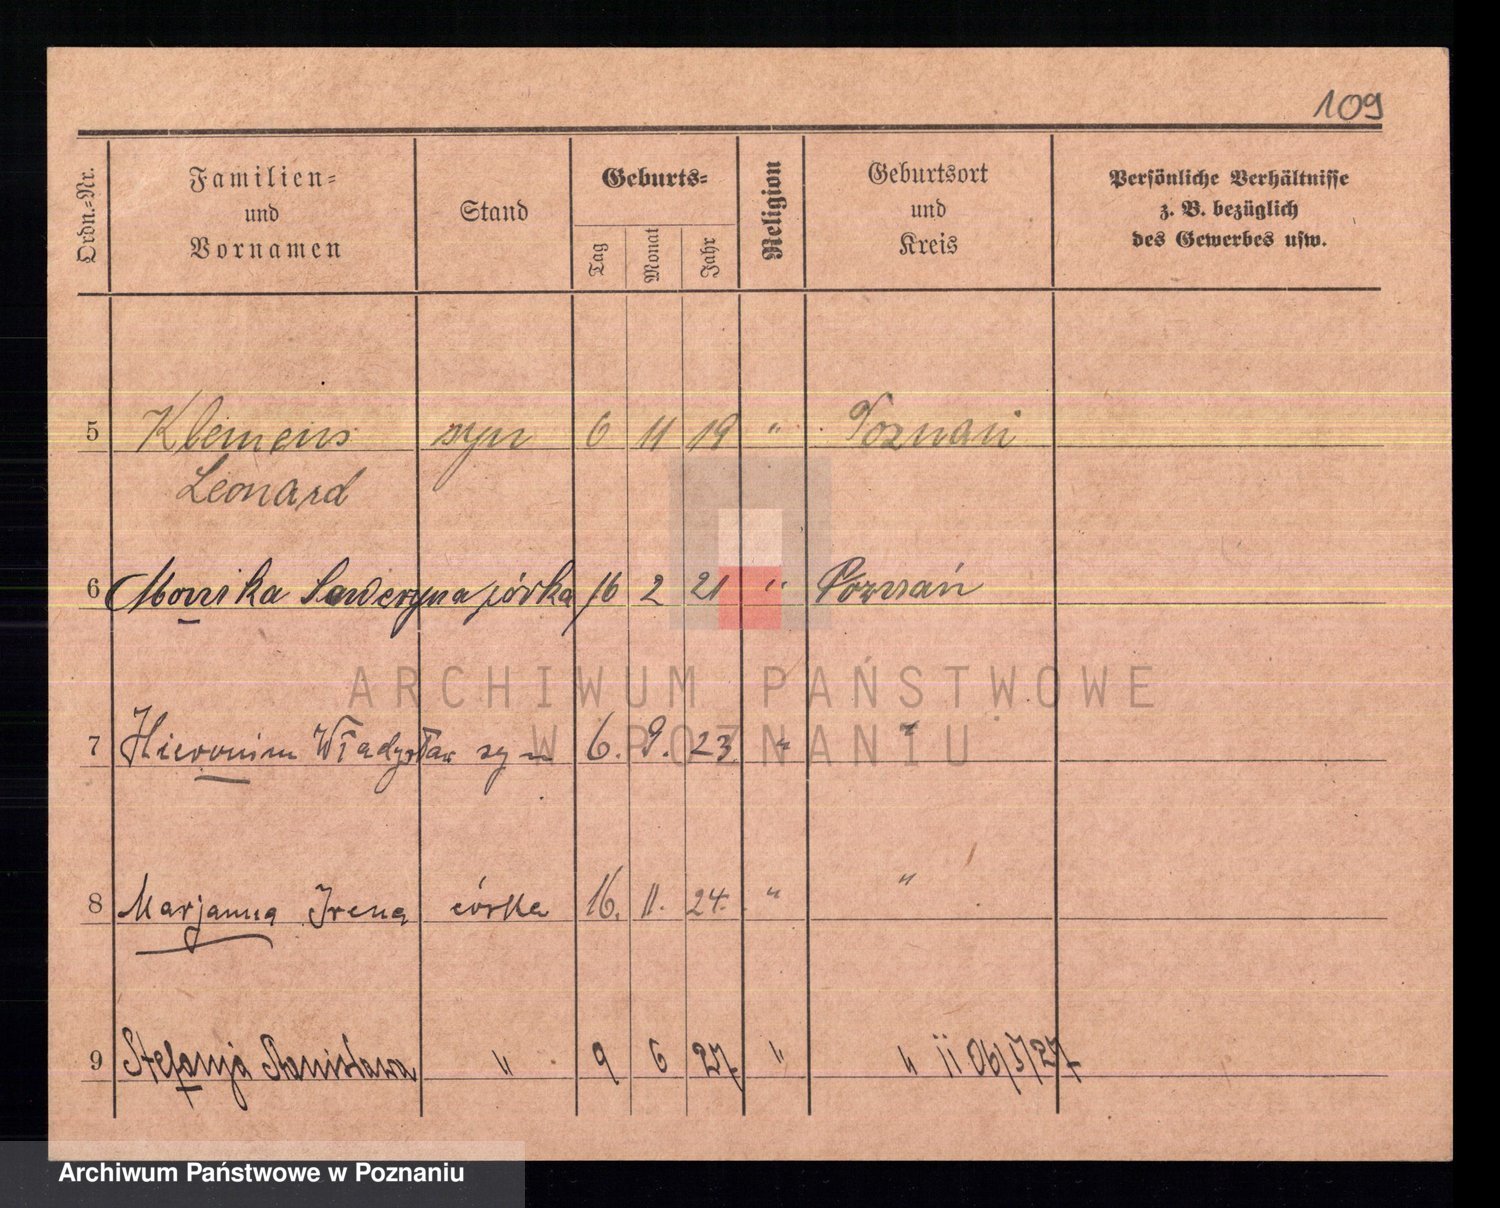 109
Ordn.-Nr.
Familien-
und
Vornamen
Stand
Geburts-
Tag
Monat
Jahr
Religion
Geburtsort
und
Kreis
Persönliche Verhältnisse
z. B. bezüglich
des Gewerbes usw.
5 Klemens syn 6 11 19 " Poznań
Leonard
6 Monika Seweryna córka 16 2 21 " Poznań
ARCHIWUM PAŃSTWOWE
W POZNANIU
7 Hieronim Władysław syn 6. 9. 23 " "
8 Marjanna Irena córka 16. 11. 24. " "
9 Stefanja Stanisława " 9 6 27 " "
Archiwum Państwowe w Poznaniu